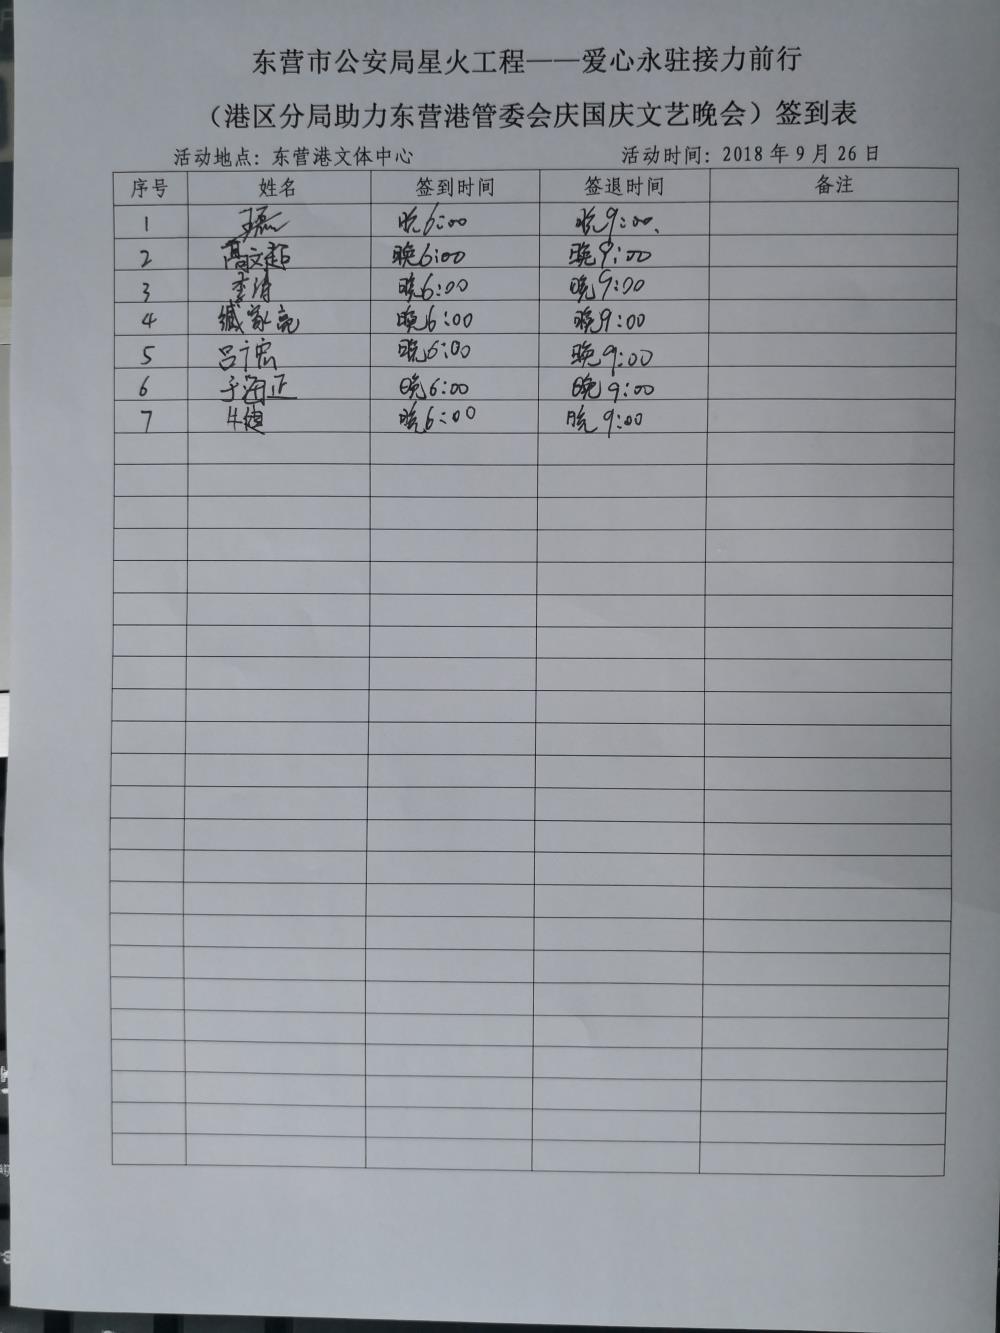 东营市公安局星火工程——爱心永驻接力前行
（港区分局助力东营港管委会庆国庆文艺晚会）签到表
活动地点：东营港文体中心 活动时间：2018年9月26日
序号 姓名 签到时间 签退时间 备注
1 王磊 晚6:00 晚9:00、
2 高文超 晚6:00 晚9:00
3 李涛 晚6:00 晚9:00
4 臧家亮 晚6:00 晚9:00
5 吕广宏 晚6:00 晚9:00
6 于海正 晚6:00 晚9:00
7 晚6:00 晚9:00